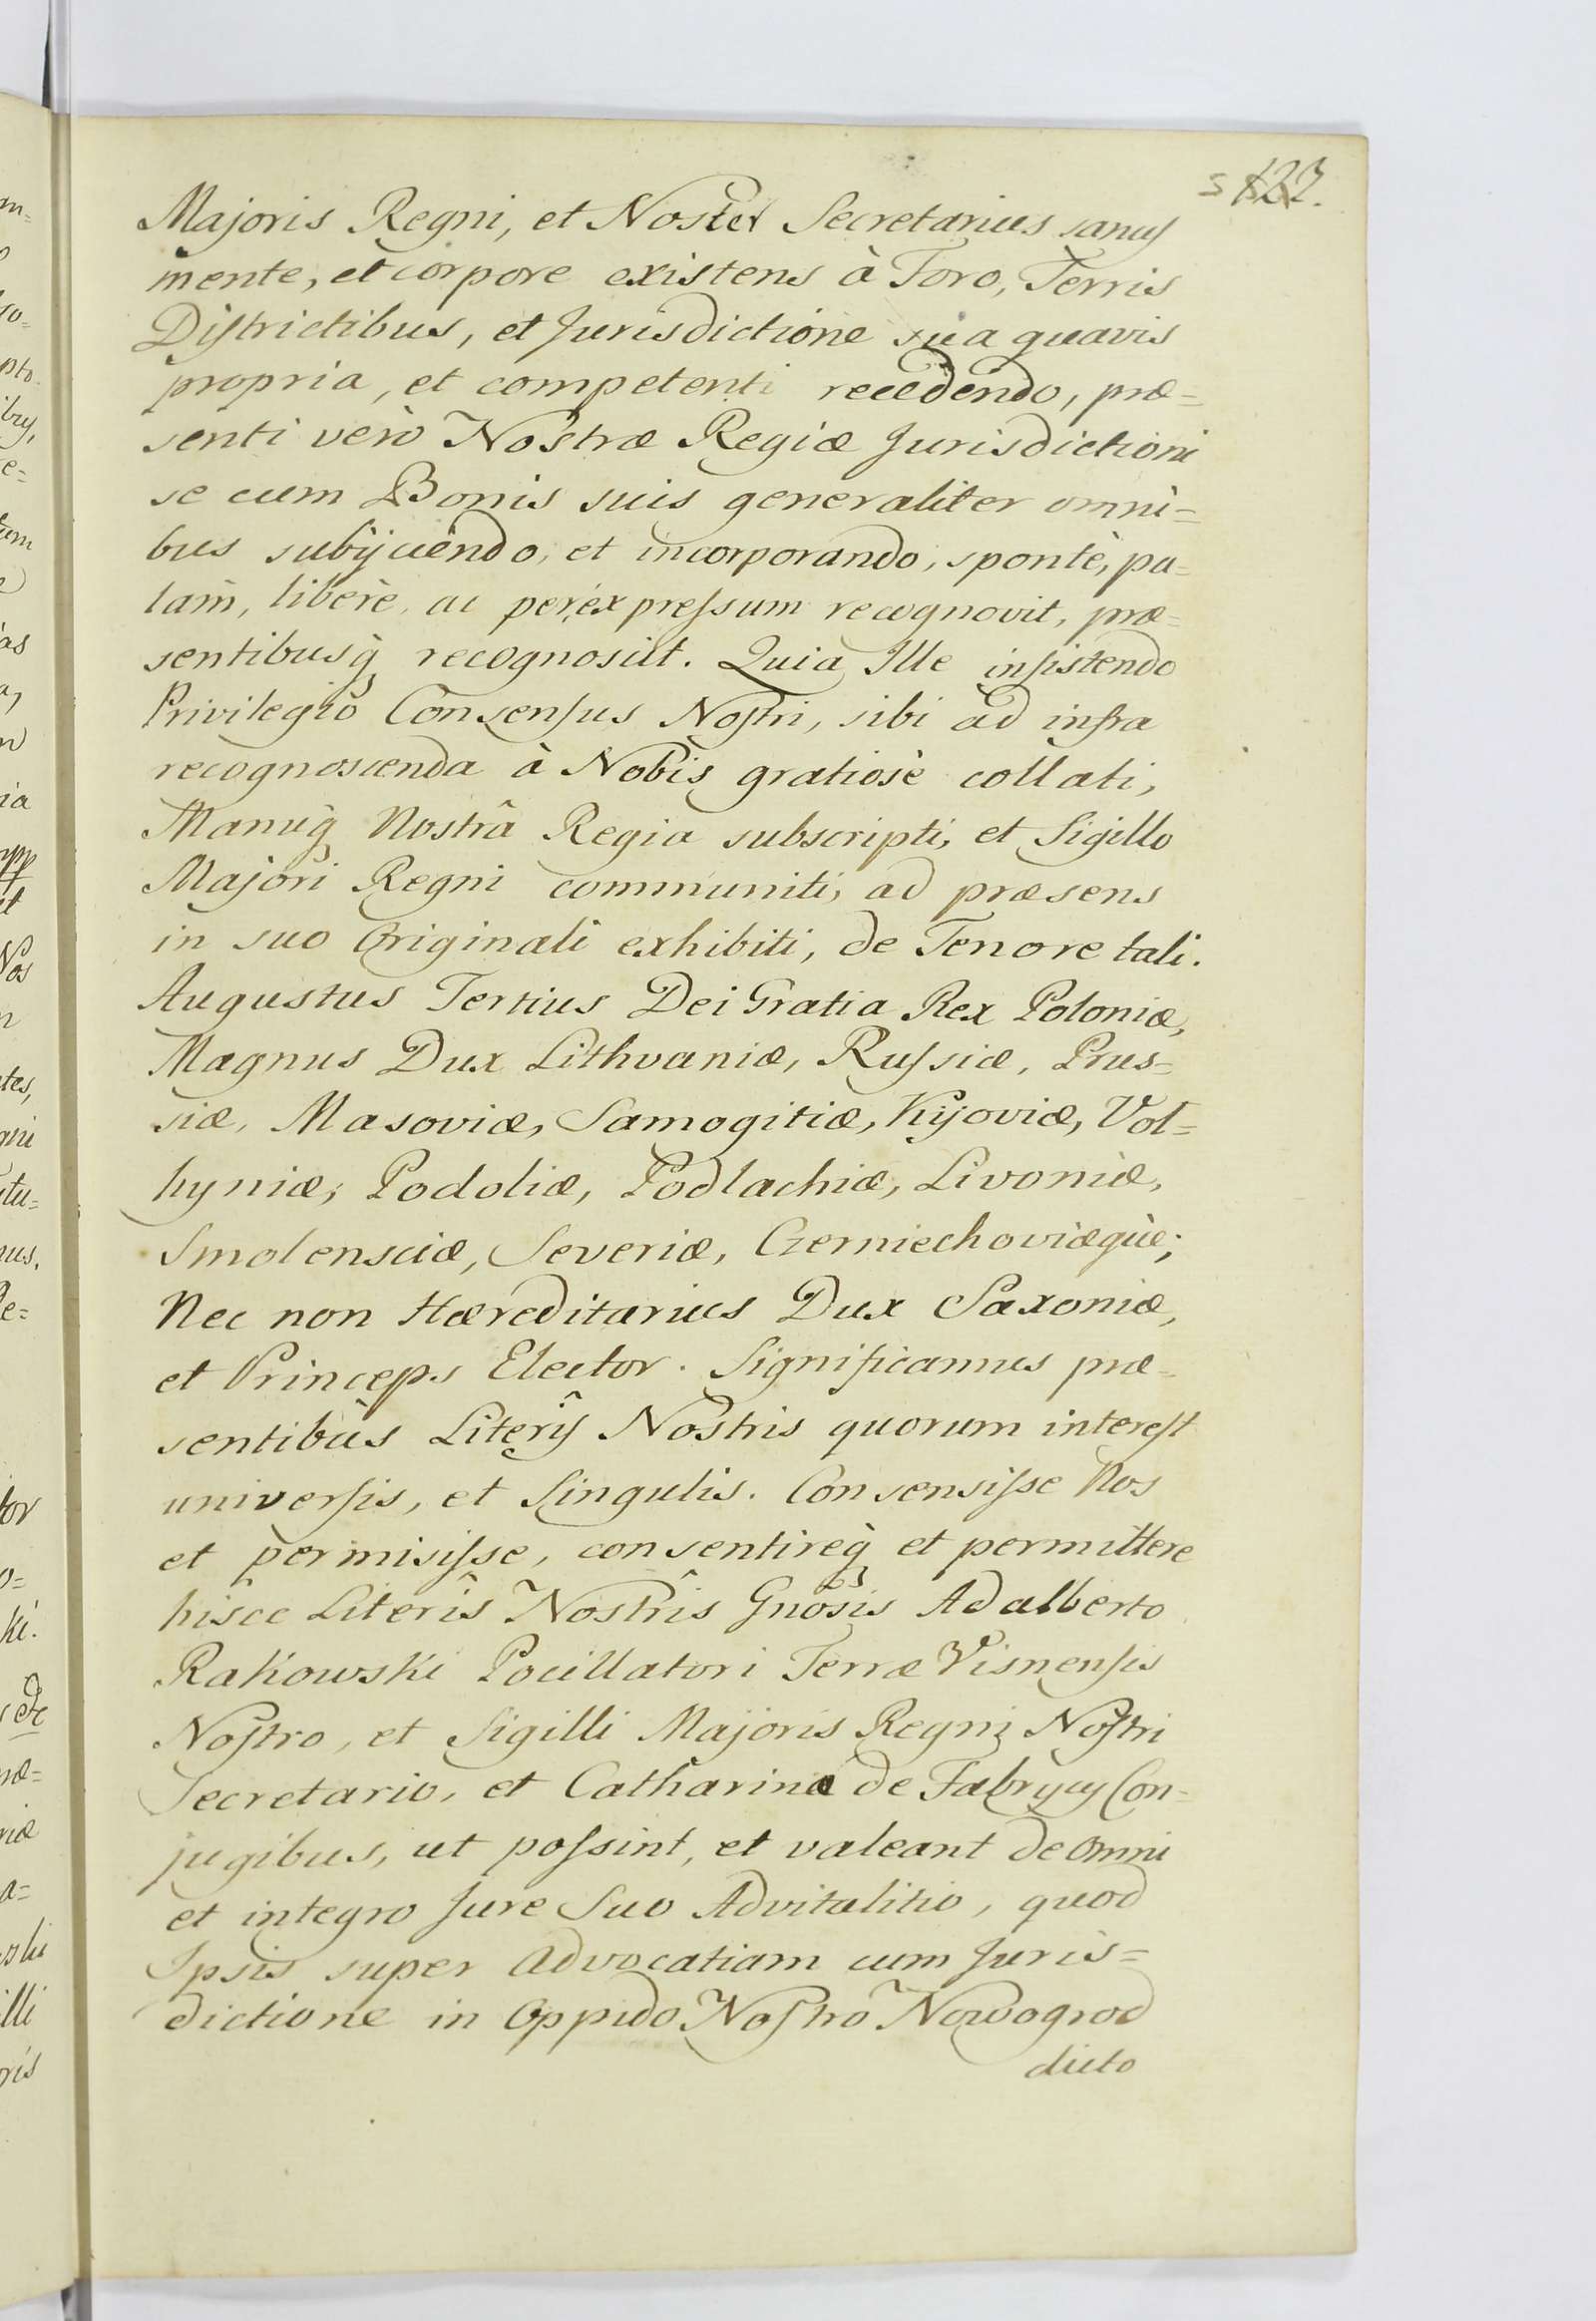 Majoris Regni, et Noster Secretarius sanus
mente, et corpore existens à Foro, Terris
Districtibus, et Jurisdictione sua quavis
propria, et competenti recedendo, præ=
senti verò Nostræ Regiæ Jurisdictioni
se cum Bonis suis generaliter omni=
bus subijciendo, et incorporando, spontè, pa=
lam, liberè, ac per expressum recognovit, præ=
sentibusq̀ recognoscit. Quia Ille insistendo
Privilegio Consensus Nostri, sibi ad infra
recognoscenda à Nobis gratiosè collati,
Manuq̀ Nostrâ Regia subscripti, et Sigillo
Majori Regni communiti, ad præsens
in suo Originali exhibiti, de Tenore tali.
Augustus Tertius Dei Gratia Rex Poloniæ,
Magnus Dux Lithvaniæ, Russiæ, Prus=
siæ, Masoviæ, Samogitiæ, Kijoviæ, Vol=
hyniæ, Podoliæ, Podlachiæ, Livoniæ,
Smolensciæ, Severiæ, Czerniechoviæquè;
Nec non Hæreditarius Dux Saxoniæ,
et Princeps Elector. Significamus præ=
sentibus Literîs Nostris quorum interest
universis, et Singulis. Consensisse Nos
et permisisse, consentireq̀ et permittere
hisce Literîs Nostrîs Gnôsis Adalberto
Rakowski Pocillatori Terræ Visnensis
Nostro, et Sigilli Majoris Regni Nostri
Secretario, et Catharinæ de Fabrycy Con=
jugibus, ut possint, et valeant de omni
et integro Jure Suo Advitalitio, quod
Ipsis super Advocatiam cum Juris=
dictione in Oppido Nostro Nowogrod
dicto